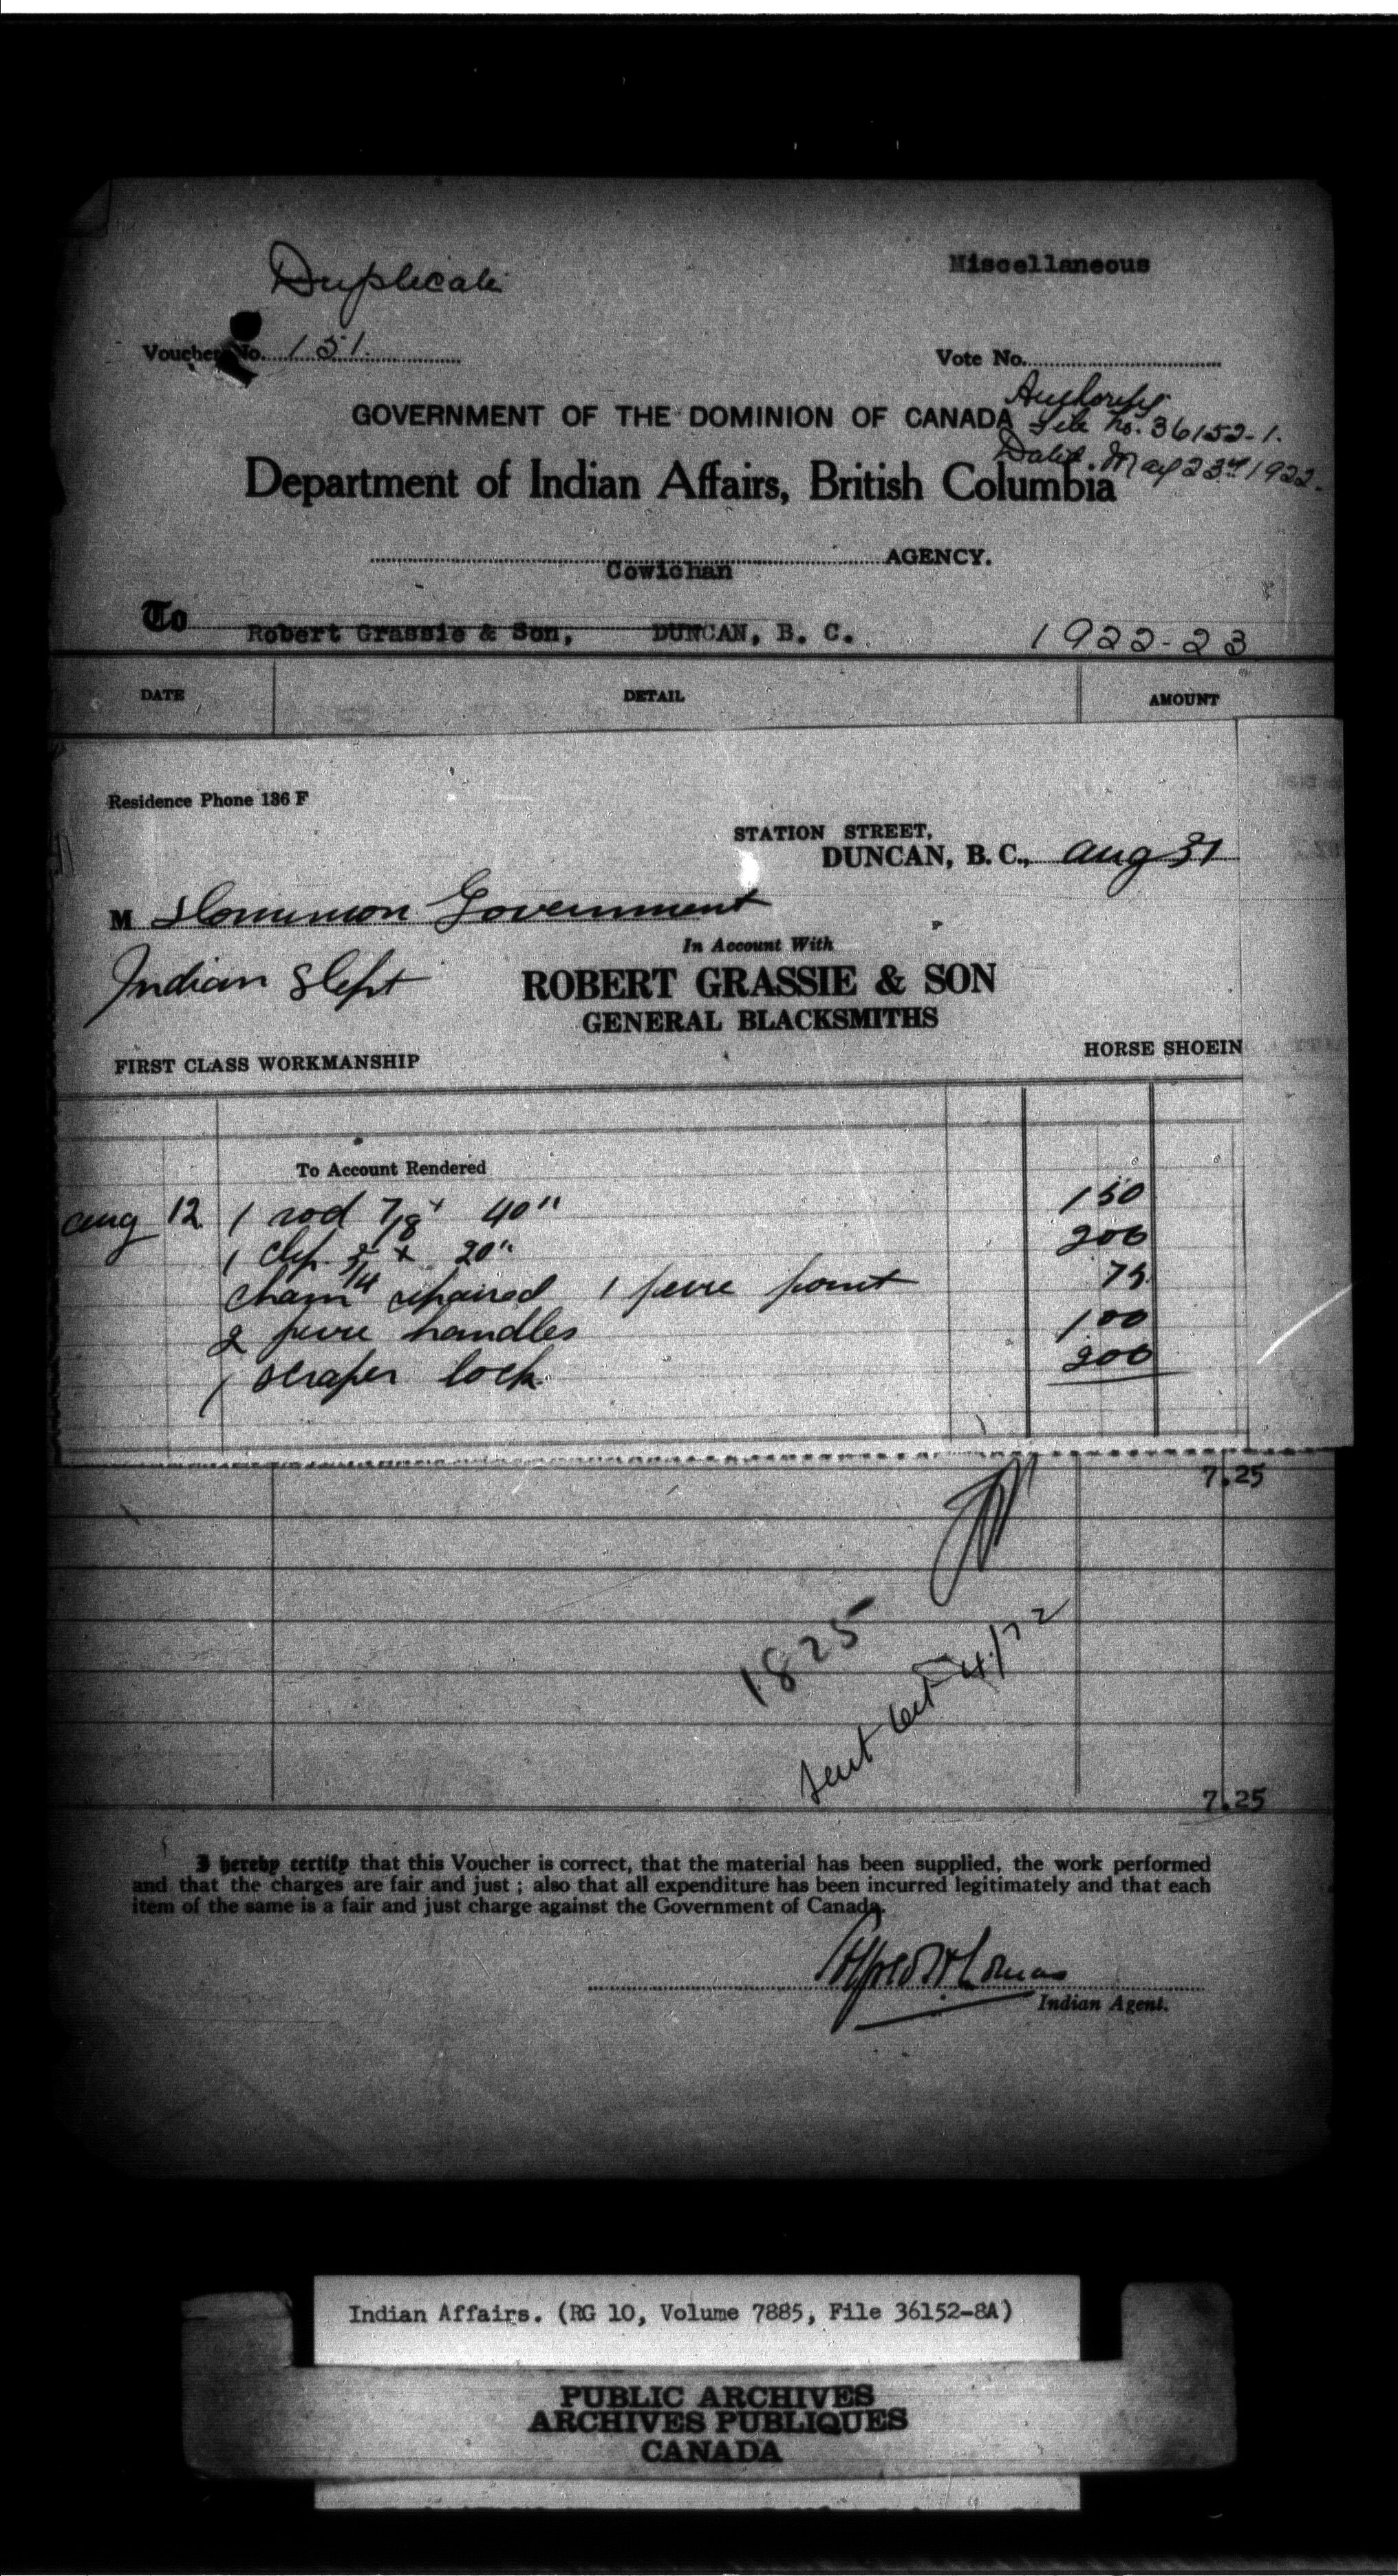 Duplicate
Miscellaneous
Voucher No. 151.
Vote No.
Authority
File No. 36152-1.
Dated. May 23rd 1922.
GOVERNMENT OF THE DOMINION OF CANADA
Department of Indian Affairs, British Columbia
Cowichan AGENCY.
To Robert Grassie & Son, DUNCAN, B. C. 1922-23
DATE DETAIL AMOUNT
Residence Phone 136 F
STATION STREET,
DUNCAN, B. C., Aug 31
M Dominion Government
Indian Dept
In Account With
ROBERT GRASSIE & SON
GENERAL BLACKSMITHS
FIRST CLASS WORKMANSHIP HORSE SHOEIN
To Account Rendered
Aug 12 1 rod 7/8 x 40" 1 50
1 clip 3/4 x 20" 2 00
Chain repaired 1 pevie point 75
2 pevie handles 1 00
1 scraper lock 2 00
7.25
1825
Sent Oct 4/22
7.25
I hereby certify that this Voucher is correct, that the material has been supplied, the work performed
and that the charges are fair and just ; also that all expenditure has been incurred legitimately and that each
item of the same is a fair and just charge against the Government of Canada.
Alfred H Lomas
Indian Agent.
Indian Affairs. (RG 10, Volume 7885, File 36152-8A)
PUBLIC ARCHIVES
ARCHIVES PUBLIQUES
CANADA